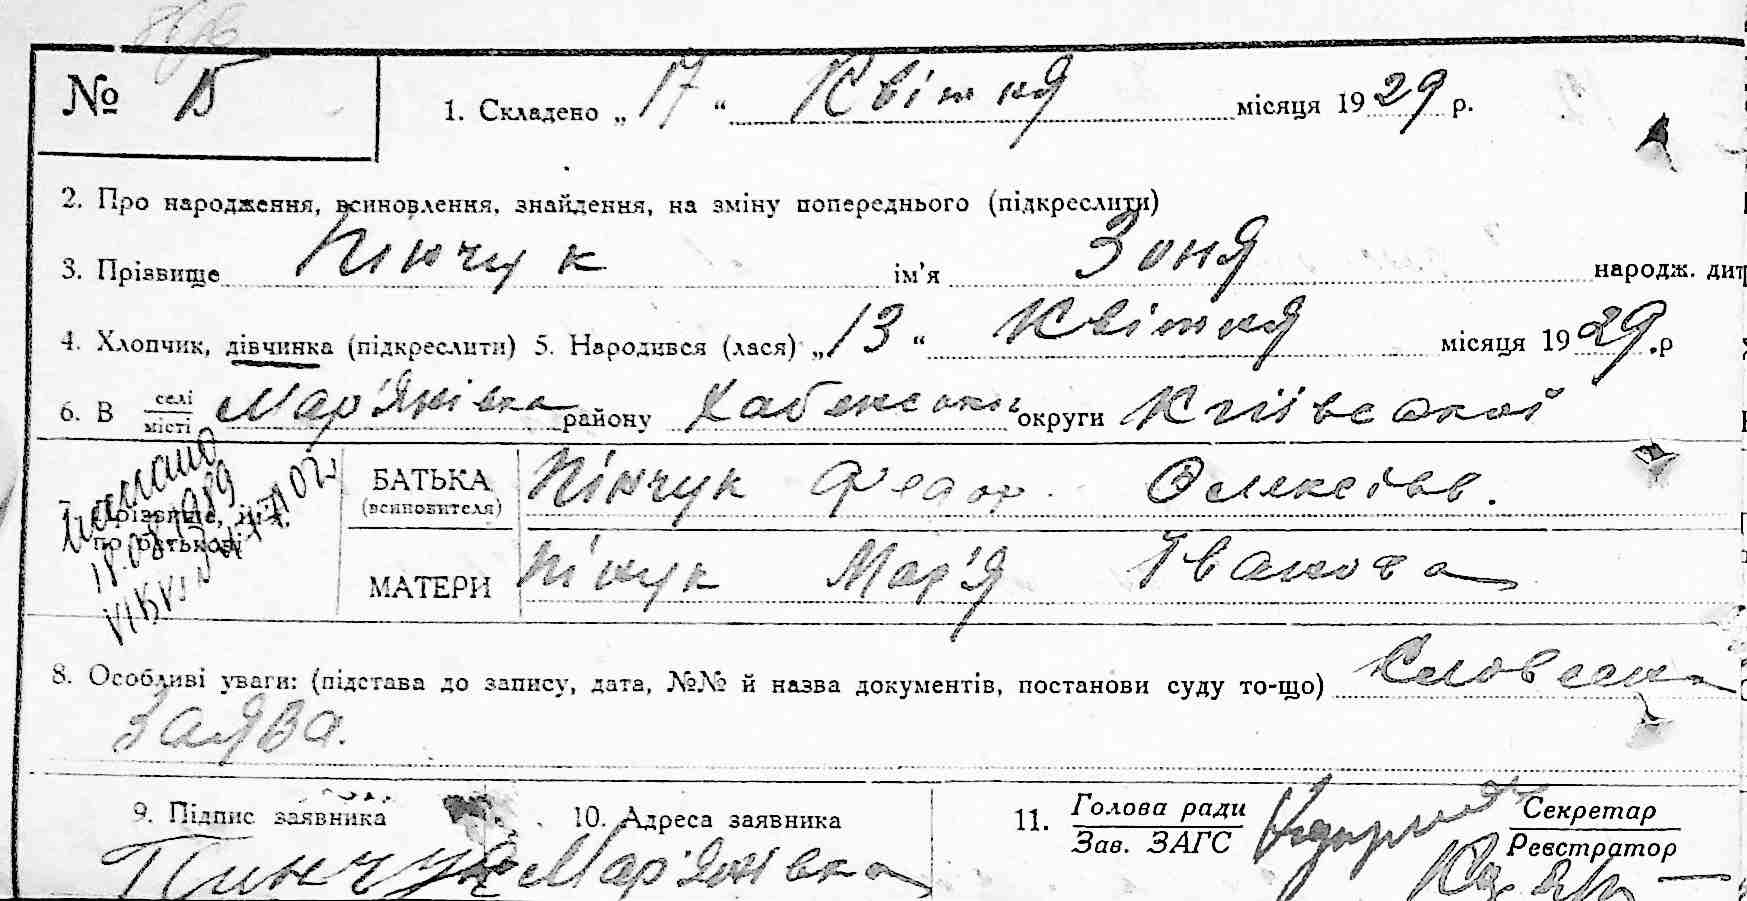 № 15
1. Складено „ 17 “ Квітня місяця 1929 р.
2. Про народження, всиновлення, знайдення, на зміну попереднього (підкреслити)
3. Прізвище Пінчук ім'я Зоня народж. дит
4. Хлопчик, дівчинка (підкреслити) 5. Народився (лася) „ 13 “ Квітня місяця 1929 .р
6. В селі місті Мар'янівка району Хабенського округи Київської
7. Прізвище, ім'я, по батькові
БАТЬКА Пінчук Федор Олексієв.
(всиновителя)
МАТЕРИ Пінчук Мар'я Іванова
8. Особливі уваги: (підстава до запису, дата, №№ й назва документів, постанови суду то-що) Словесна
Заява.
9. Підпис заявника 10. Адреса заявника 11. Голова ради Секретар
Зав. ЗАГС Реєстратор
Пинчук Мар'янівка